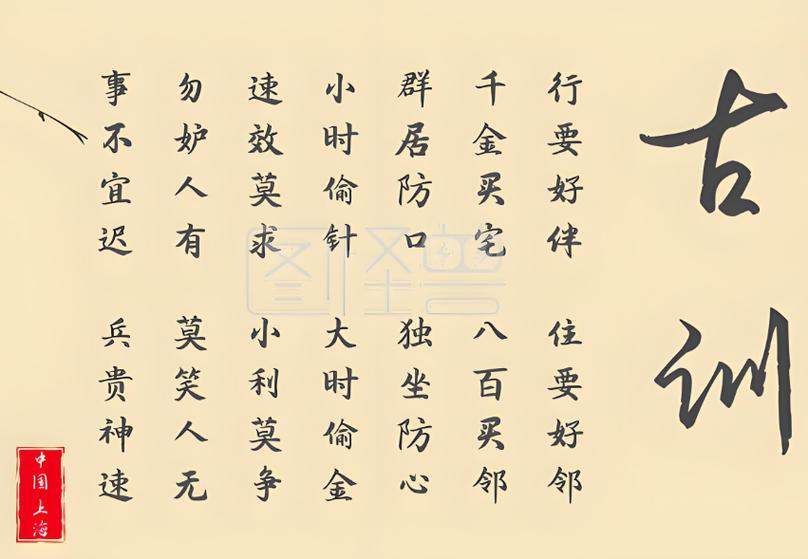 古训
行要好伴 住要好邻
千金买宅 八百买邻
群居防口 独坐防心
小时偷针 大时偷金
速效莫求 小利莫争
勿妒人有 莫笑人无
事不宜迟 兵贵神速
中国上海
图怪兽